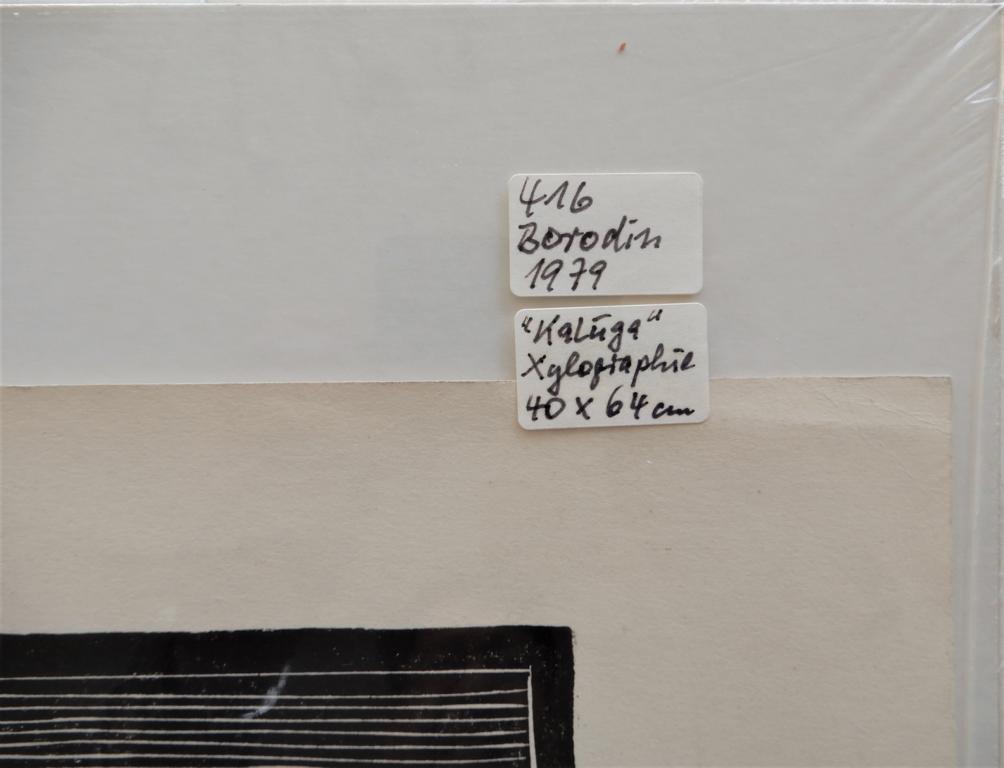 416
Borodin
1979
"Kalūga"
Xylographie
40 x 64 cm